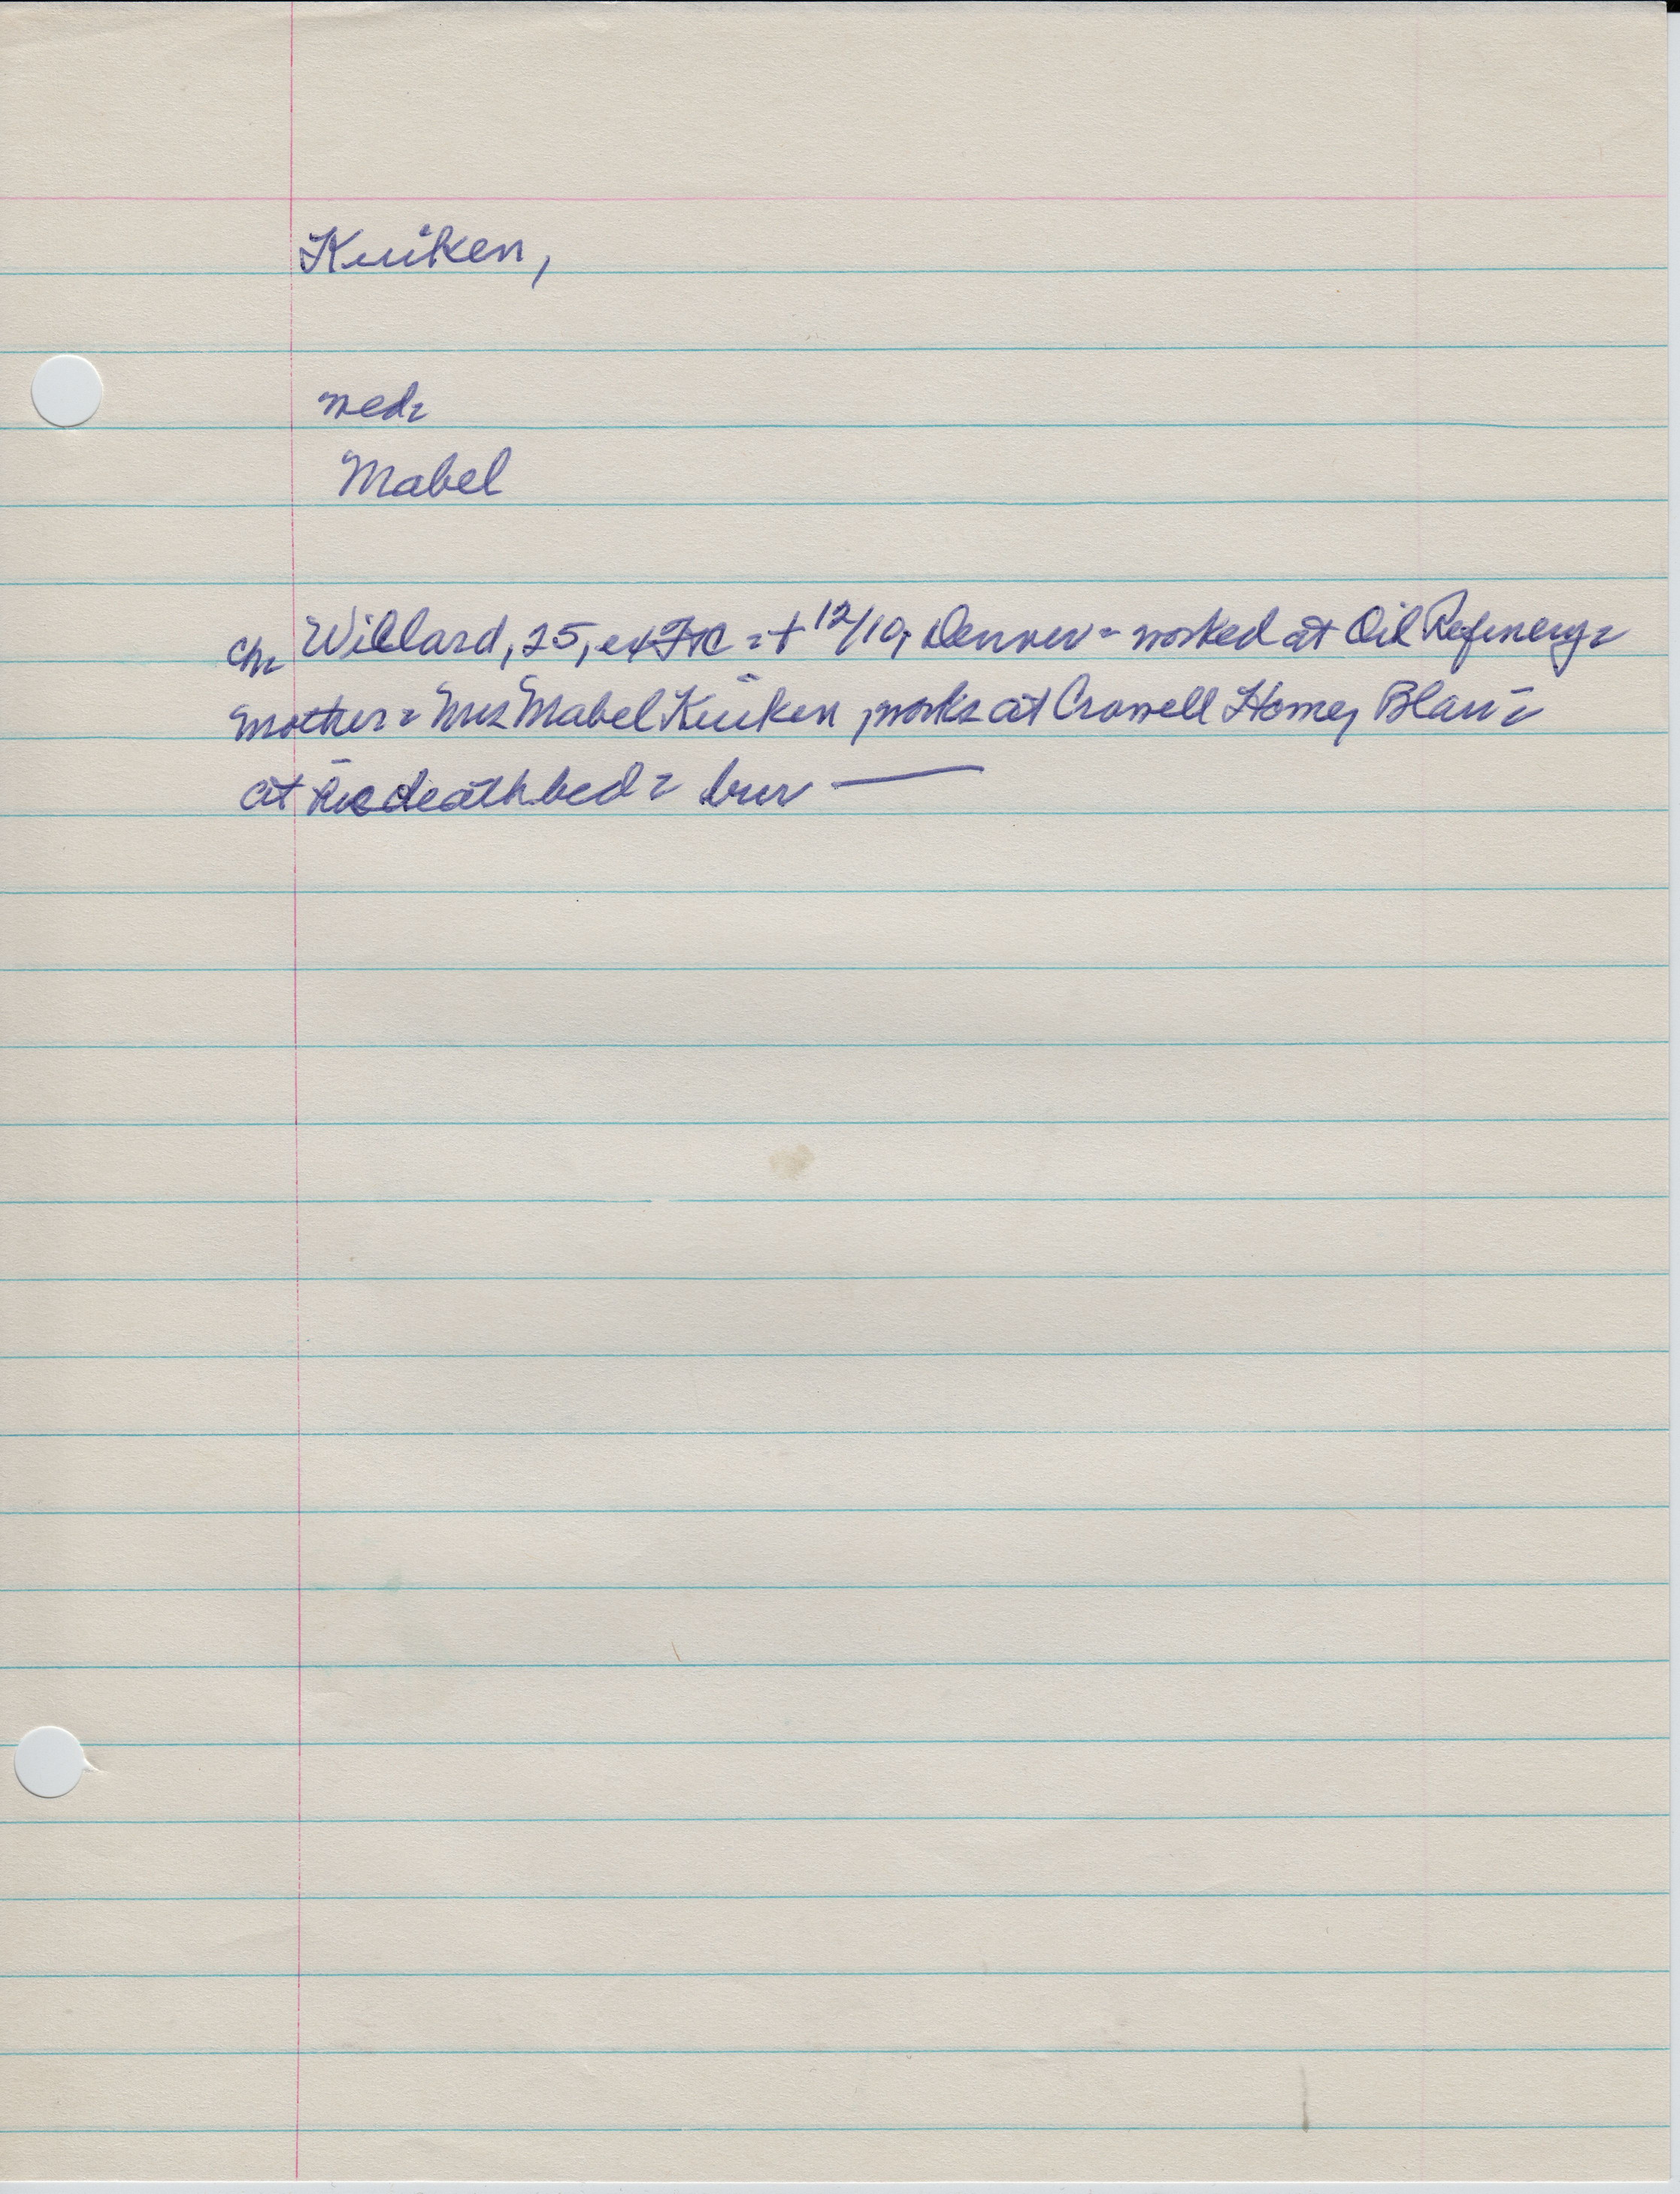 Kuiken,
wed=
Mabel
ch= Willard, 25, ex = † 12/10, Denver = worked at Oil Refinery=
mother = Mrs Mabel Kuiken, works at Crowell Home, Blair=
at his deathbed = bur —